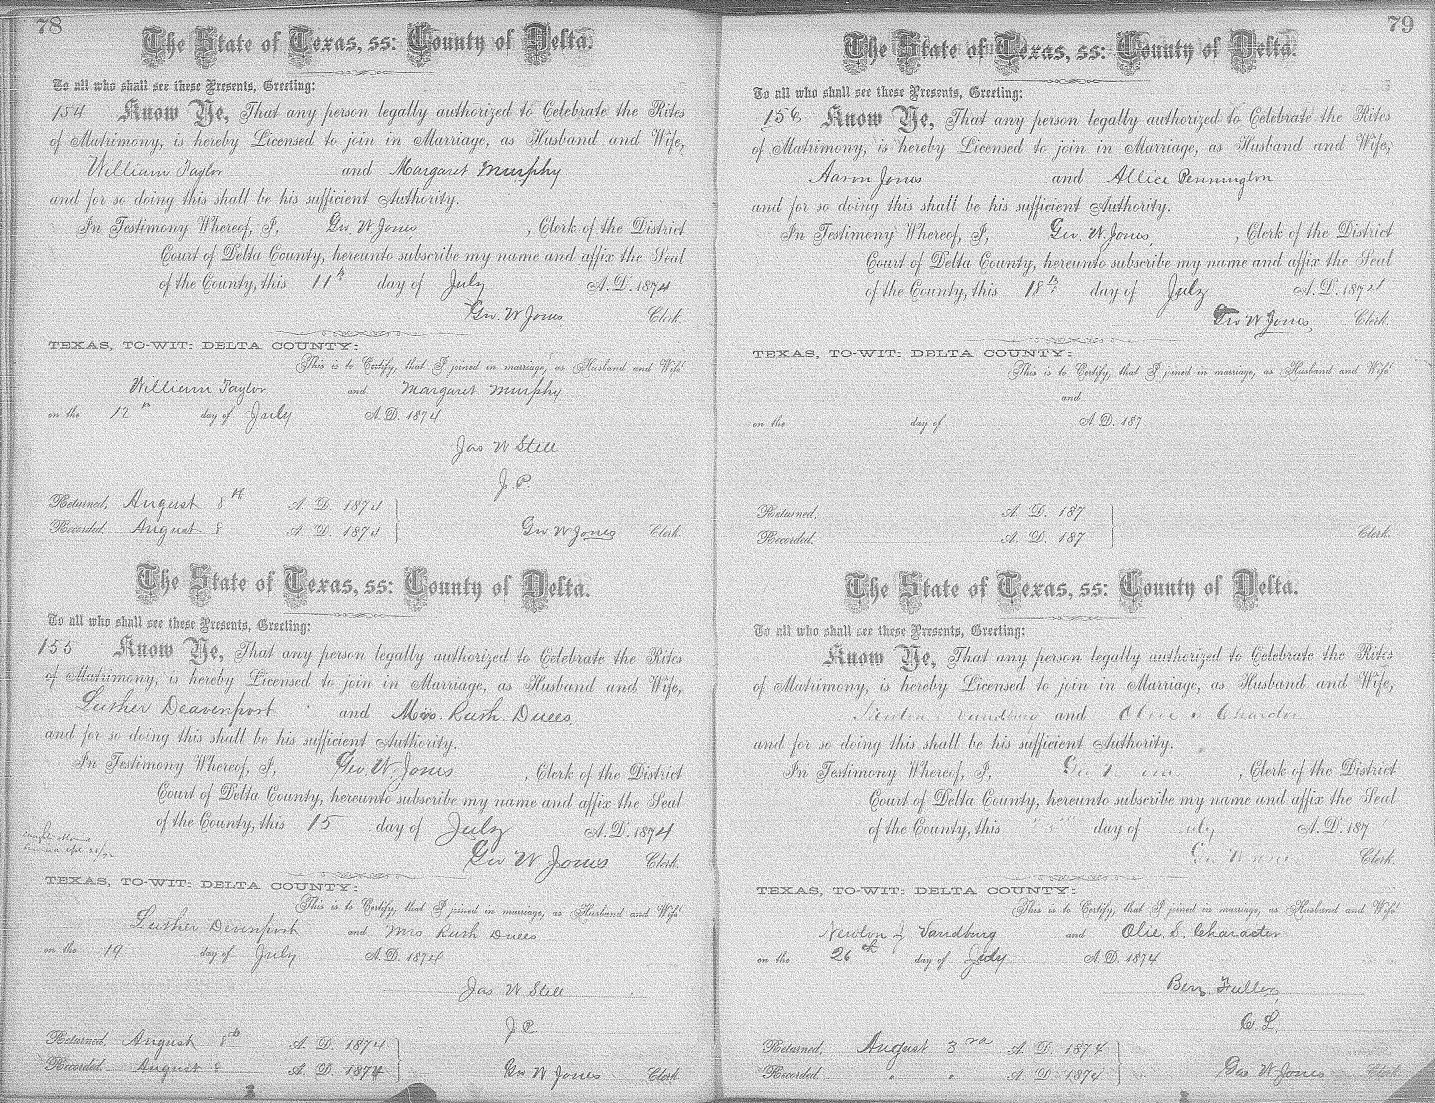 78
The State of Texas, ss: County of Delta.
To all who shall see these Presents, Greeting:
154 Know Ye, That any person legally authorized to Celebrate the Rites
of Matrimony, is hereby Licensed to join in Marriage, as Husband and Wife,
William Taylor and Margaret Murphy
and for so doing this shall be his sufficient Authority.
In Testimony Whereof, I, Geo W Jones, Clerk of the District
Court of Delta County, hereunto subscribe my name and affix the Seal
of the County, this 11th day of July A.D. 1874
Geo. W Jones Clerk.
TEXAS, TO-WIT: DELTA COUNTY:
This is to Certify, that I joined in marriage, as Husband and Wife
William Taylor and Margaret Murphy
on the 12th day of July A.D. 1874
Jas W Still
J.P.
Returned, August 8th A. D. 1874
Recorded August 8 A. D. 1874
Geo W Jones Clerk.
The State of Texas, ss: County of Delta.
To all who shall see these Presents, Greeting:
155 Know Ye, That any person legally authorized to Celebrate the Rites
of Matrimony, is hereby Licensed to join in Marriage, as Husband and Wife,
Luther Deavenport and Mrs. Ruth Duees
and for so doing this shall be his sufficient Authority.
In Testimony Whereof, I, Geo. W Jones, Clerk of the District
Court of Delta County, hereunto subscribe my name and affix the Seal
of the County, this 15 day of July A.D. 1874
Geo W Jones Clerk.
TEXAS, TO-WIT: DELTA COUNTY:
This is to Certify, that I joined in marriage, as Husband and Wife
Luther Devenport and Mrs Ruth Duees
on the 19 day of July A.D. 1874
Jas W Still
J P
Returned, August 8th A. D. 1874
Recorded August 8 A. D. 1874
Geo W Jones Clerk
79
The State of Texas, ss: County of Delta.
To all who shall see these Presents, Greeting:
156 Know Ye, That any person legally authorized to Celebrate the Rites
of Matrimony, is hereby Licensed to join in Marriage, as Husband and Wife,
Aaron Jones and Allice Pennington
and for so doing this shall be his sufficient Authority.
In Testimony Whereof, I, Geo. W. Jones, Clerk of the District
Court of Delta County, hereunto subscribe my name and affix the Seal
of the County, this 18th day of July A.D. 1874
Geo W Jones, Clerk.
TEXAS, TO-WIT: DELTA COUNTY:
This is to Certify, that I joined in marriage, as Husband and Wife
and
on the day of A.D. 187
Returned, A. D. 187
Recorded, A. D. 187
Clerk.
The State of Texas, ss: County of Delta.
To all who shall see these Presents, Greeting:
Know Ye, That any person legally authorized to Celebrate the Rites
of Matrimony, is hereby Licensed to join in Marriage, as Husband and Wife,
Vandburg and
and for so doing this shall be his sufficient Authority.
In Testimony Whereof, I, , Clerk of the District
Court of Delta County, hereunto subscribe my name and affix the Seal
of the County, this day of July A.D. 187
Clerk.
TEXAS, TO-WIT: DELTA COUNTY:
This is to Certify, that I joined in marriage, as Husband and Wife
Newton J Vandburg and Olie. S. Character
on the 26th day of July A.D. 1874
Benj. Fuller,
Returned, August 3rd A. D. 1874
Recorded " " A. D. 1874
Geo W Jones Clerk